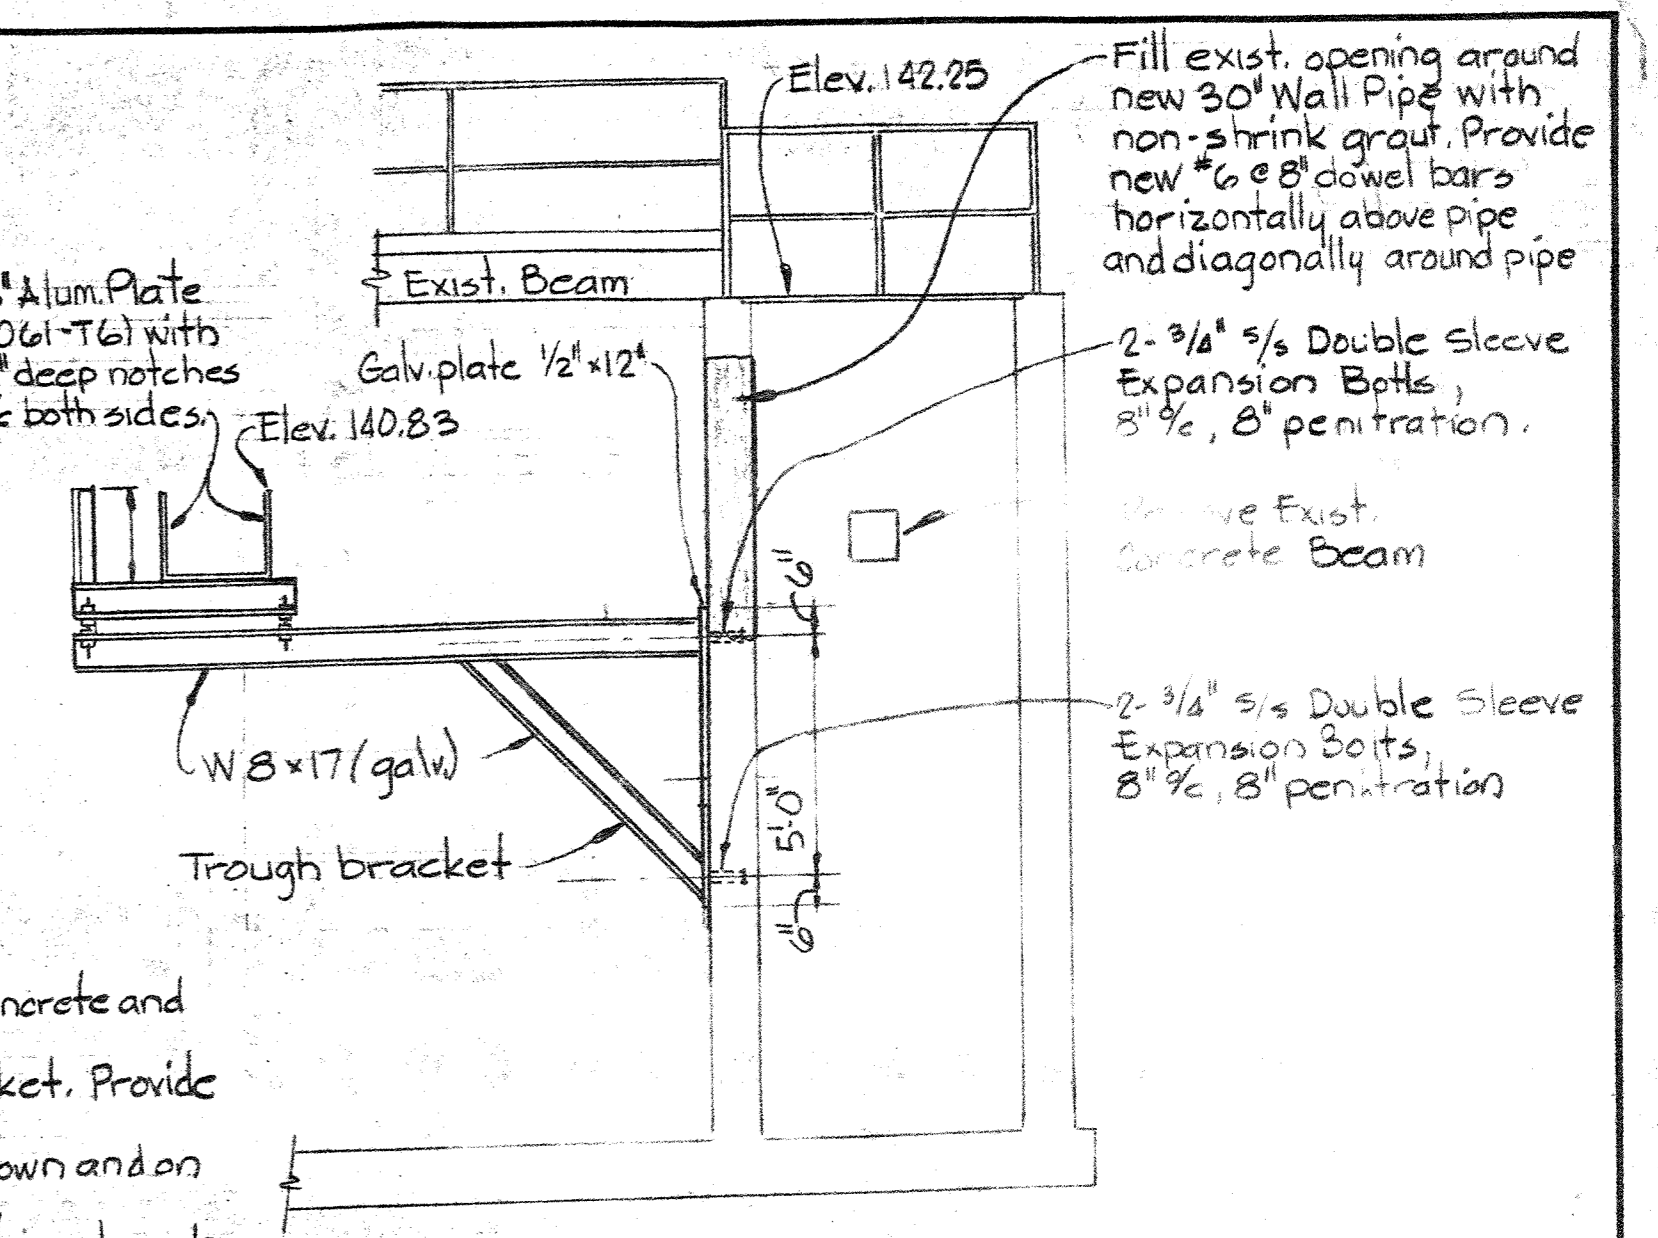 Elev. 142.25
Fill exist. opening around
new 30" Wall Pipe with
non-shrink grout. Provide
new #6 @ 8" dowel bars
horizontally above pipe
and diagonally around pipe
Exist. Beam
" Alum. Plate
061-T6) with
" deep notches
both sides.
Galv. plate 1/2" x 12"
Elev. 140.83
2- 3/4" s/s Double Sleeve
Expansion Botls,
8" o/c, 8" penitration.
ve Exist.
Concrete Beam
6"
W 8 x 17 (galv.)
2- 3/4" s/s Double Sleeve
Expansion Bolts,
8" o/c, 8" penitration
5'-0"
Trough bracket
6"
ncrete and
ket. Provide
own and on